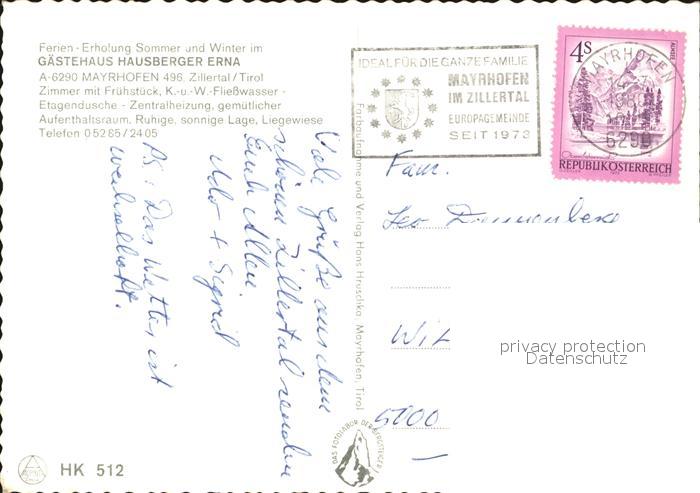 Ferien - Erholung Sommer und Winter im
GÄSTEHAUS HAUSBERGER ERNA
A-6290 MAYRHOFEN 496, Zillertal / Tirol
Zimmer mit Frühstück, K.-u.-W.-Fließwasser -
Etagendusche - Zentralheizung, gemütlicher
Aufenthaltsraum, Ruhige, sonnige Lage, Liegewiese
Telefon 0 52 85 / 24 05
Viele Grüße aus dem
schönen Zillertal senden
Euch Allen
Udo + Sigrid
PS: Das Wetter ist
wechselhaft.
HK 512
Farbaufnahme und Verlag Hans Hruschka, Mayrhofen, Tirol
DAS FOTOLABOR DER BERGSTEIGER
IDEAL FÜR DIE GANZE FAMILIE
MAYRHOFEN
IM ZILLERTAL
EUROPAGEMEINDE
SEIT 1973
4S
MAYRHOFEN
6290
REPUBLIK ÖSTERREICH
Fam.
Leo
privacy protection
Datenschutz